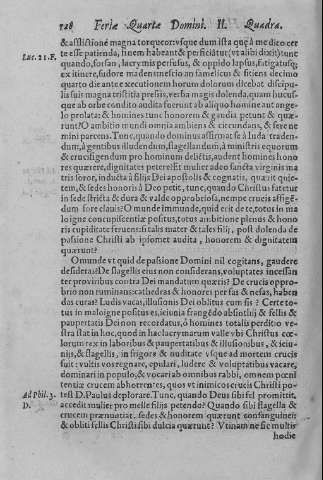 128 Feriæ Quartæ Domini. II. Quadra.
& afflictione magna torqueor: vsque dum ista quę à me dico cer
te esse patienda, finem habeant & perficiātur (vt alibi dixit) tunc
Luc. 21. F.
quando, forsan, lacrymis perfusus, & oppido lapsus, fatigatusq;
ex itinere, sudore madens, nescio an famelicus & sitiens decimo
quarto die ante executionem horum dolorum direbat discipu-
lis suis magna tristitia pressis, versus magis dolenda, quam hucus-
que ab orbe condito audita fuerunt ab aliquo homine aut ange-
lo prolata: & homines tunc honorem & gaudia petunt & quæ-
runt? O ambitio mundi omnia ambiens & circundans, & serene
mini parens. Tunc, quando dominus affirmat se à Iuda traden-
dum, à gentibus illudendum, flagellandum, à ministris equorum
& crucifigendum pro hominum delictis, audent homines hono
res quærere, dignitates petere, est mulier adeo sancta virginis ma
tris soror, inducta à filijs Dei apostolis & cognatis, quærit quie-
tem, & sedes honoris à Deo petit, tunc, quando Christus fatetur
in sede stricta & dura & valde opprobriosa, nempe crucis affigē-
dum fore clauis? O munde immunde, quid erit de te, totus in ma
ligne concupiscentiæ positus, totus ambitione plenus & hono
ris cupiditate feruens: si talis mater & tales filij, post dolenda de
passione Christi ab ipsomet audita, honorem & dignitatem
quærunt?
Omunde vt quid de passione Domini nil cogitans, gaudere
desideras? De flagellis eius non considerans, voluptates incessan
ter proviribus contra Dei mandatum quæris? De crucis oppro-
brio non ruminans: cathedras & honores per fas & nefas, haben
dos curas? Ludis vacas, illusionis Dei oblitus cum sis? Certe to-
tus in maligne positus es, ieiunia frangēdo absinthij & fellis &
paupertatis Dei non recordatus, ô homines totalis perditio ve-
stra stat in hoc, quod in hac lacrymarum valle vbi Christus cœ-
lorum rex in laboribus & paupertatibus & illusionibus, & ieiu-
nijs, & flagellis, in frigore & nuditate vsque ad mortem crucis
fuit: vultis vos regnare, epulari, ludere & voluptatibus vacare,
dominari in populo, & vocari ab omnibus rabbi, omnem pœni
tentiæ crucem abhorrentes, quos vt inimicos crucis Christi po-
Ad Phil. 3. D.
test D. Paulus deplorare. Tunc, quando Deus sibi fel promittit,
accedit mulier pro melle filijs petendo? Quando sibi flagella &
crucem prænuotiat, sedes & honorem quærunt consanguinei
& obliti fellis Christi sibi dulcia quærunt? Vtinam ne sic multis
hodie